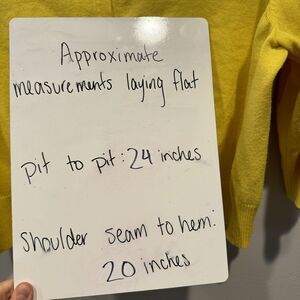 Approximate
measurements laying flat
pit to pit: 24 inches
Shoulder seam to hem:
20 inches